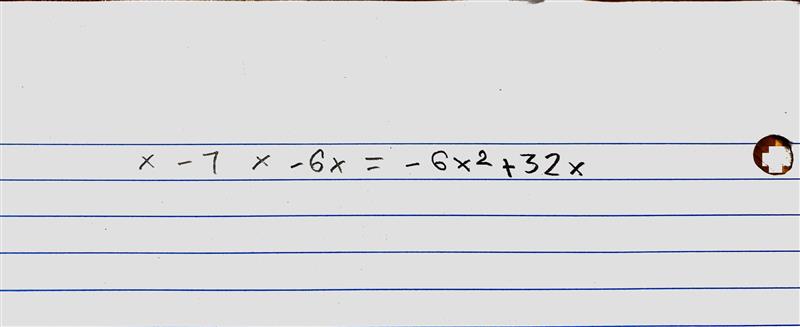 x -7 x -6x = -6x² +32x